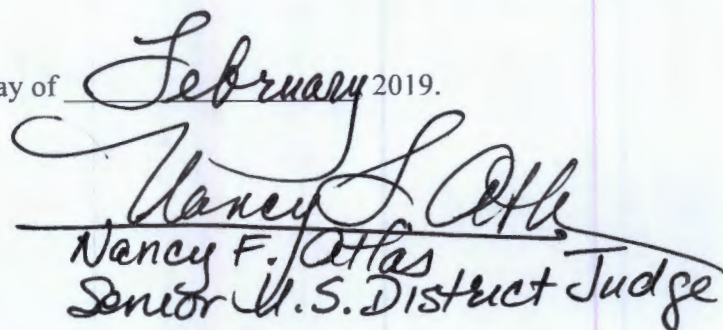 ay of February 2019.
Nancy F. Atlas
Nancy F. Atlas
Senior U.S. District Judge